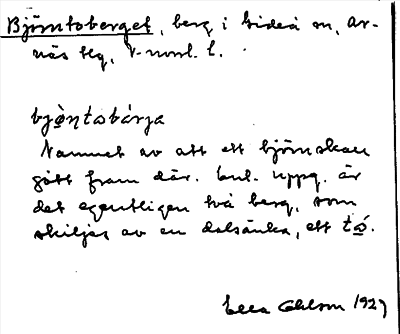 Björntoberget, berg i Gideå sn, Ar-
näs tlg, V-norrl. l.
bjö̀ntobárja
Namnet av att ett björnskall
gått fram där. Enl. uppg. är
det egentligen två berg, som
skiljes av en dalsänka, ett tǫ́.
Ella Ohlson 1927